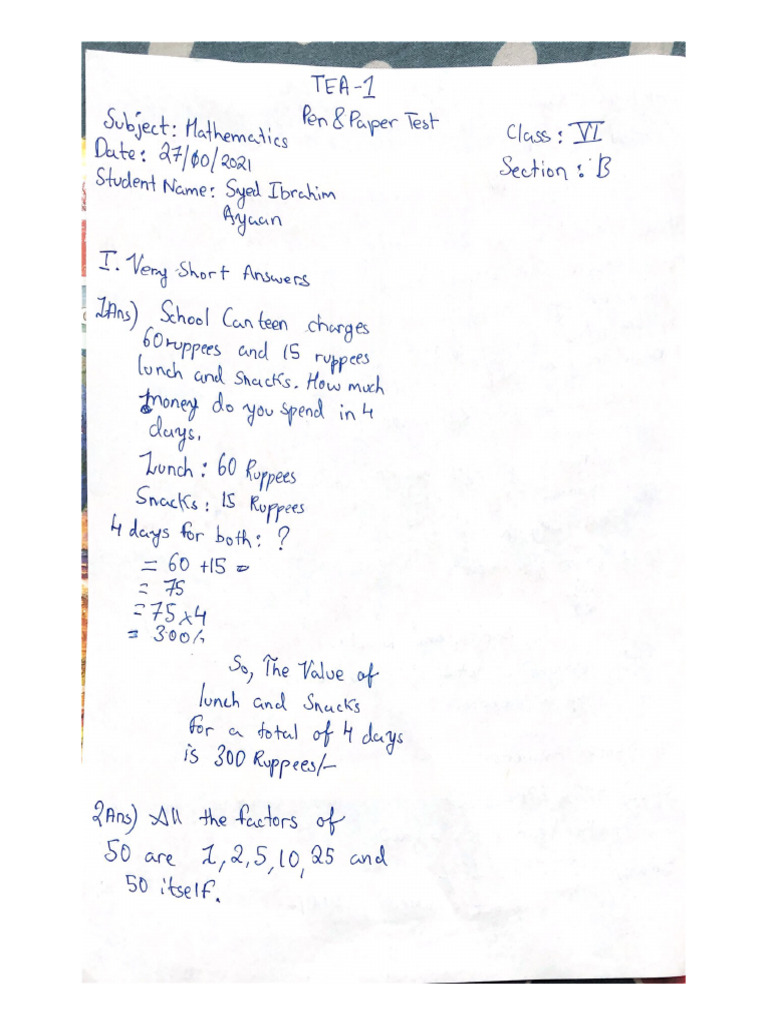 TEA-1
Pen & Paper Test
Subject: Mathematics
Class: VI
Date: 27/10/2021
Section: B
Student Name: Syed Ibrahim
Ayaan
I. Very Short Answers
1Ans) School Canteen charges
60 ruppees and 15 ruppees
lunch and snacks. How much
money do you spend in 4
days.
Lunch: 60 Ruppees
Snacks: 15 Ruppees
4 days for both: ?
= 60 +15 =
= 75
= 75 x 4
= 300/.
So, The Value of
lunch and Snacks
for a total of 4 days
is 300 Ruppees/-
2Ans) All the factors of
50 are 1, 2, 5, 10, 25 and
50 itself.